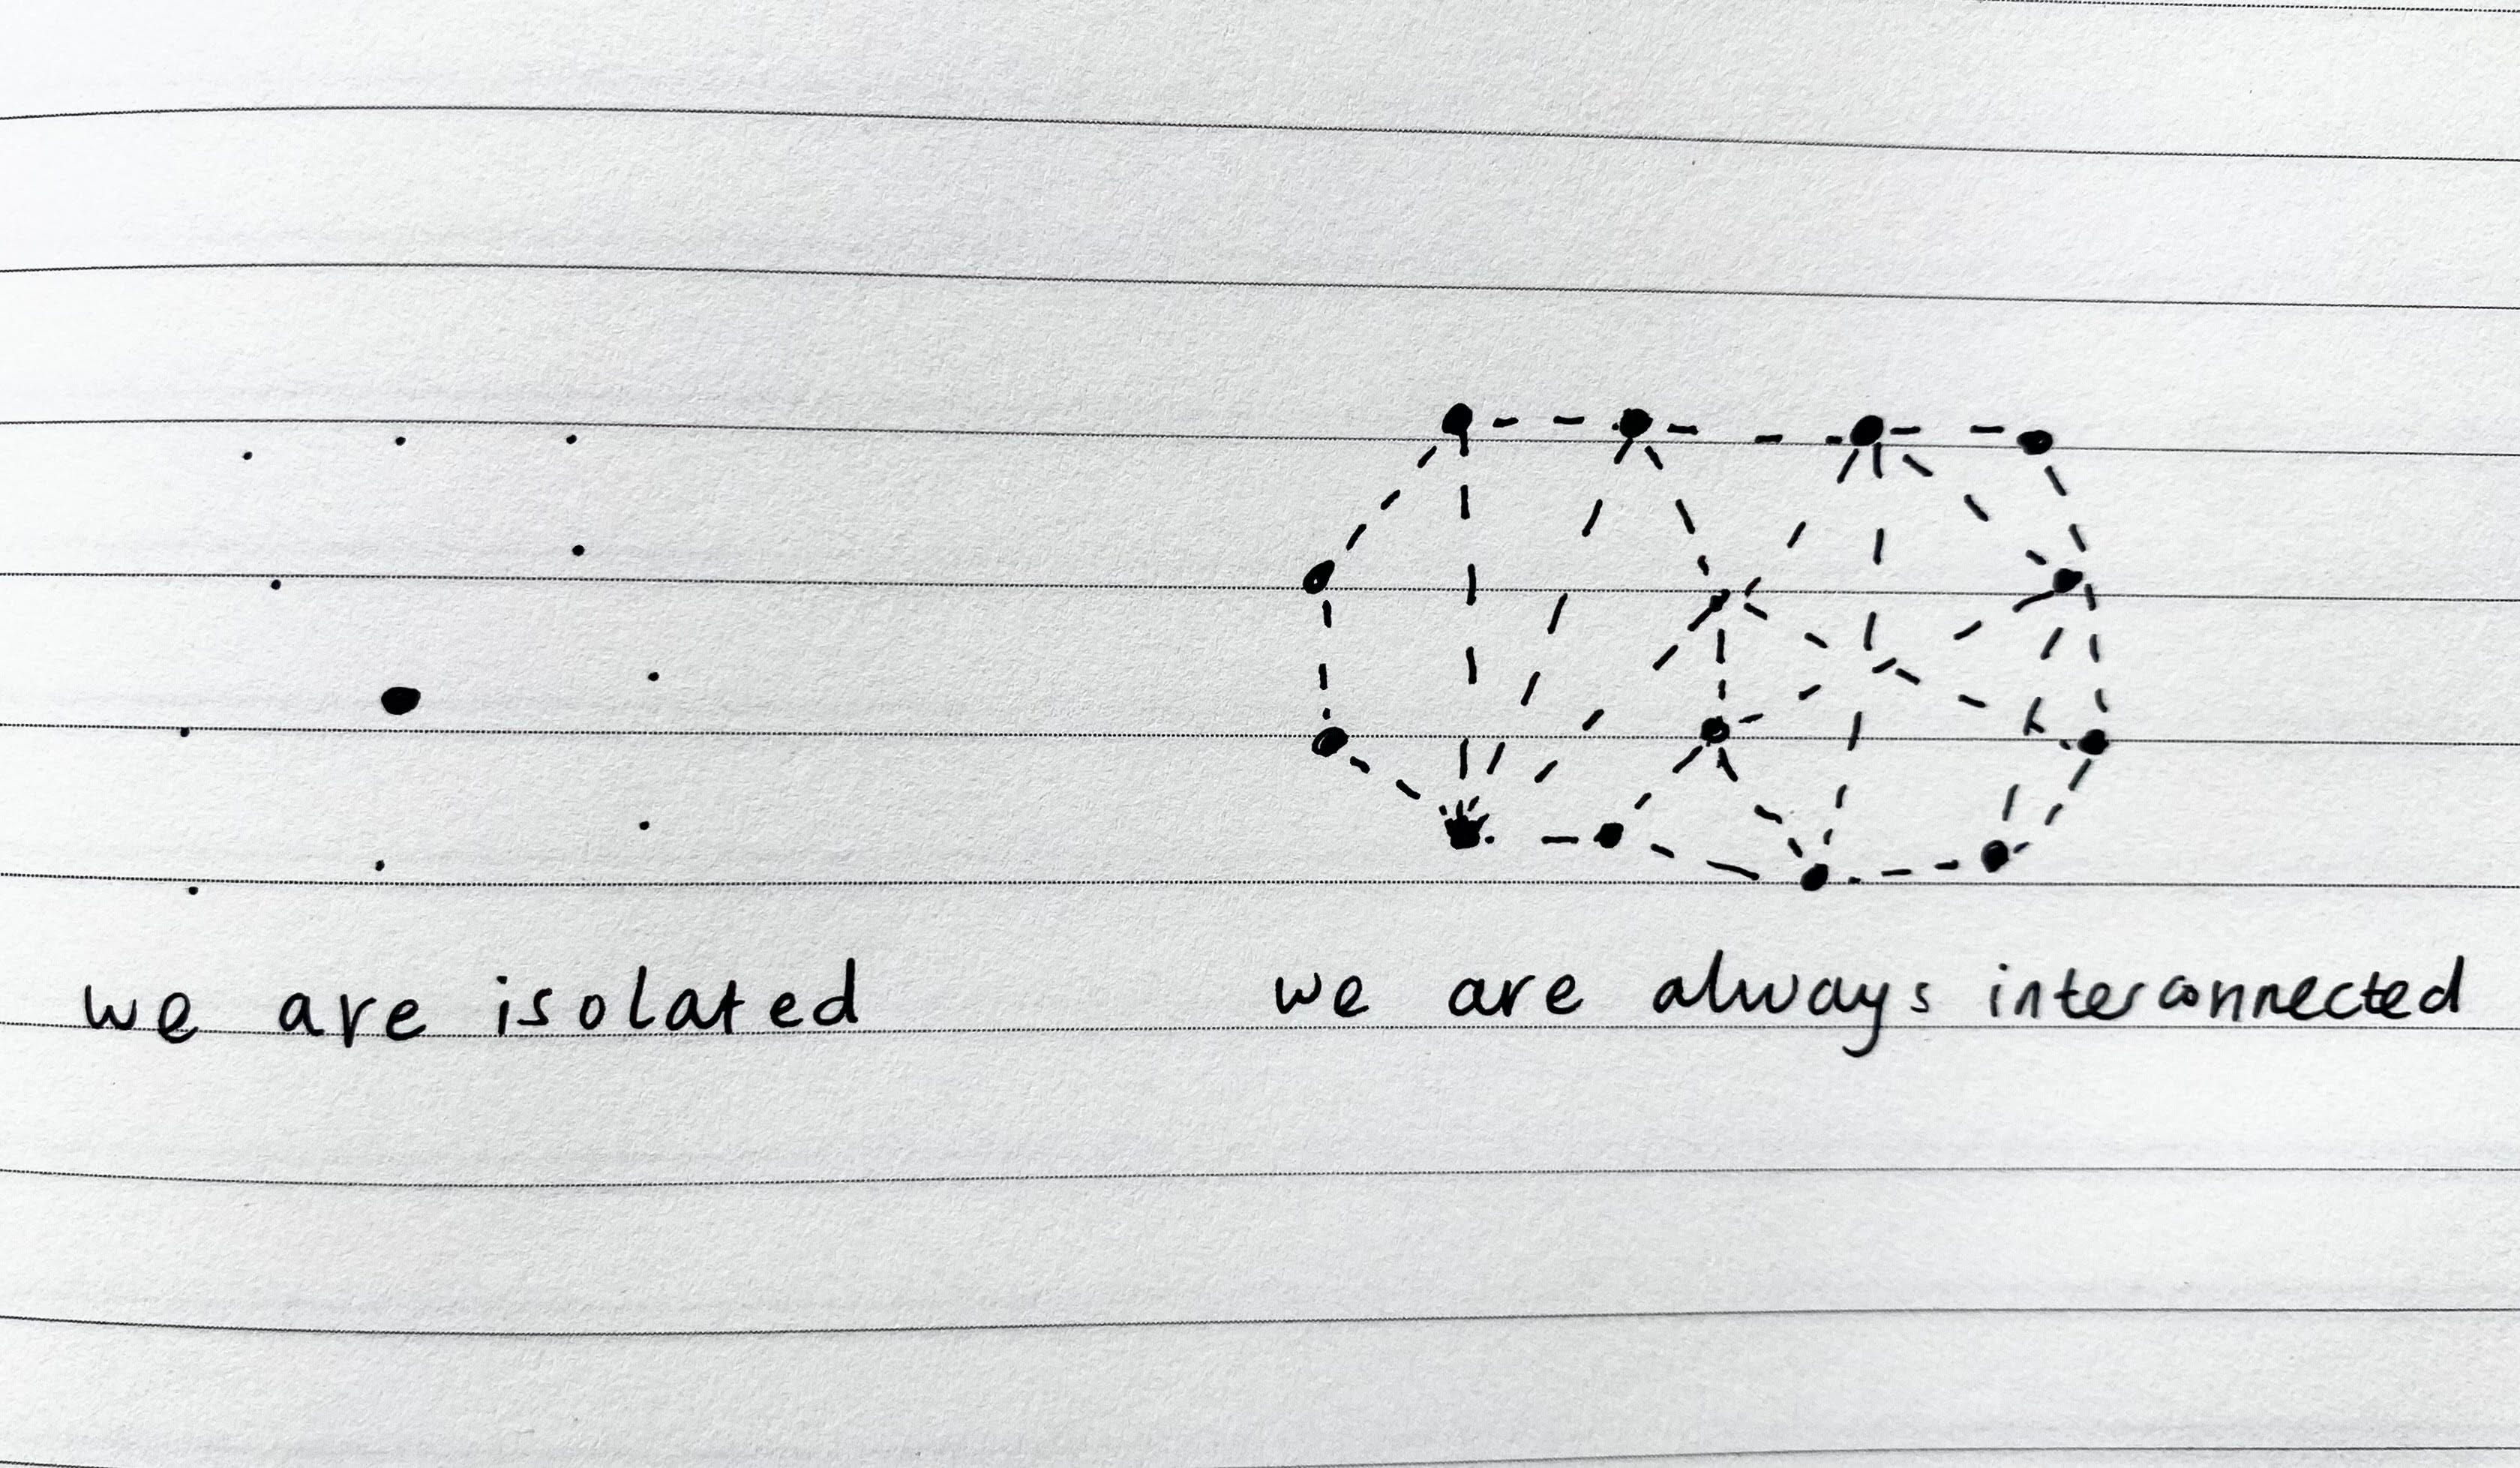 we are isolated
we are always interconnected